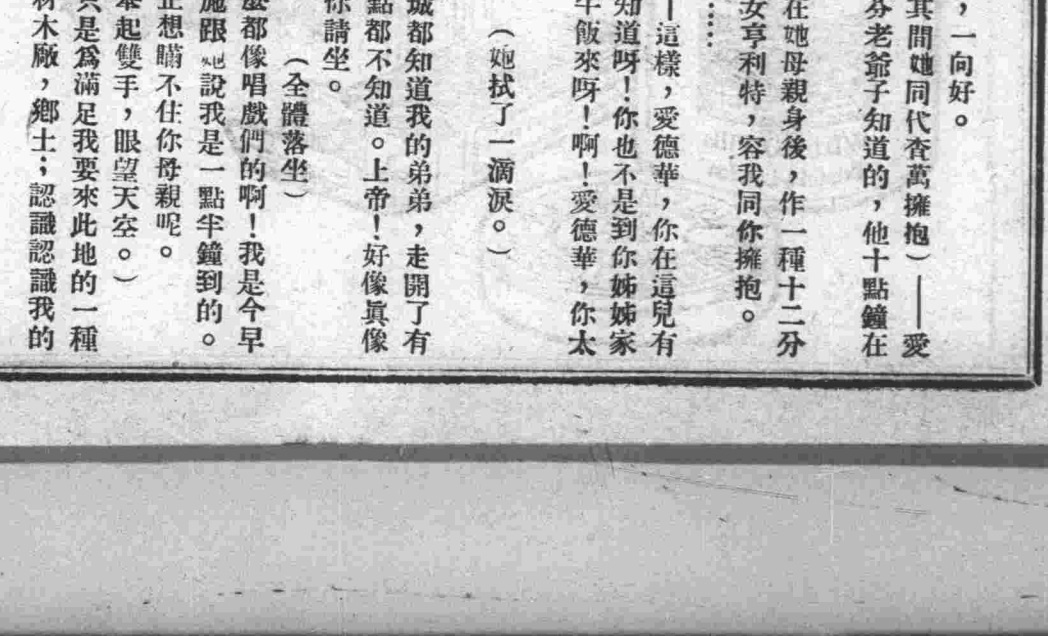 ，一向好。
其間她同代查萬擁抱）——愛
芬老爺子知道的，他十點鐘在
在她母親身後，作一種十二分
女亨利特，容我同你擁抱。
……
—這樣，愛德華，你在這兒有
知道呀！你也不是到你姊姊家
午飯來呀！啊！愛德華，你太
（她拭了一滴淚。）
城都知道我的弟弟，走開了有
點都不知道。上帝！好像眞像
你請坐。
（全體落坐）
麼都像唱戲們的啊！我是今早
施跟她說我是一點半鐘到的。
正想瞞不住你母親呢。
舉起雙手，眼望天空。）
只是爲滿足我要來此地的一種
材木廠，鄉士；認識認識我的